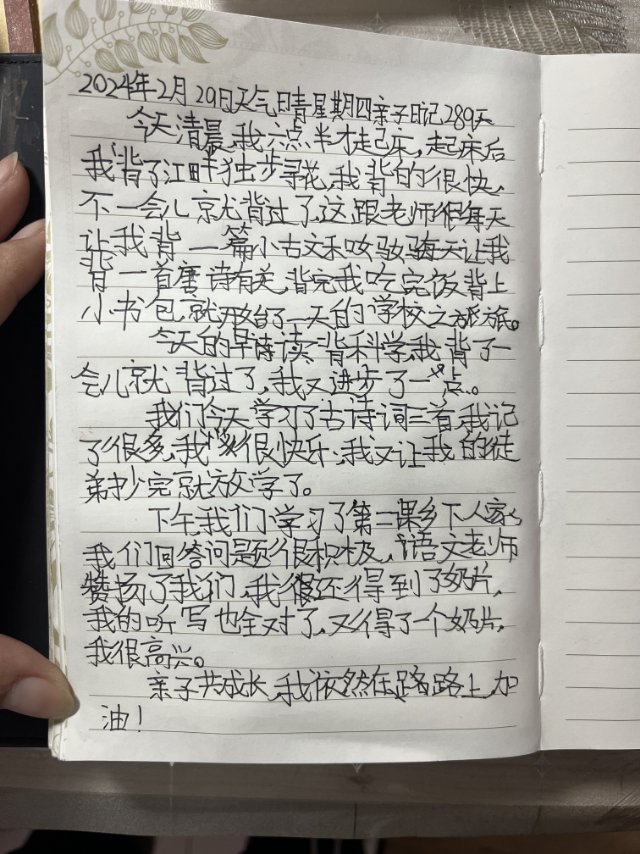 2024年2月29日天气晴星期四亲子日记289天
今天清晨,我六点半才起床,起床后
我背了江畔独步寻花,我背的很快,
不一会儿就背过了,这跟老师很每天
让我背一篇小古文和妈妈每天让我
背一首唐诗有关,背完我吃完饭背上
小书包,就开始了一天的学校之旅。
今天的早诗读,背科学,我背了一
会儿就背过了,我又进步了一点。
我们今天学习了古诗词三首,我记
了很多,我很快乐,我又让我的徒
弟抄完就放学了。
下午我们学习了第二课乡下人家,
我们回答问题很积极,语文老师
赞扬了我们,我很还得到了奶片,
我的听写也全对了,又得了一个奶片,
我很高兴。
亲子共成长,我依然在路路上,加
油!